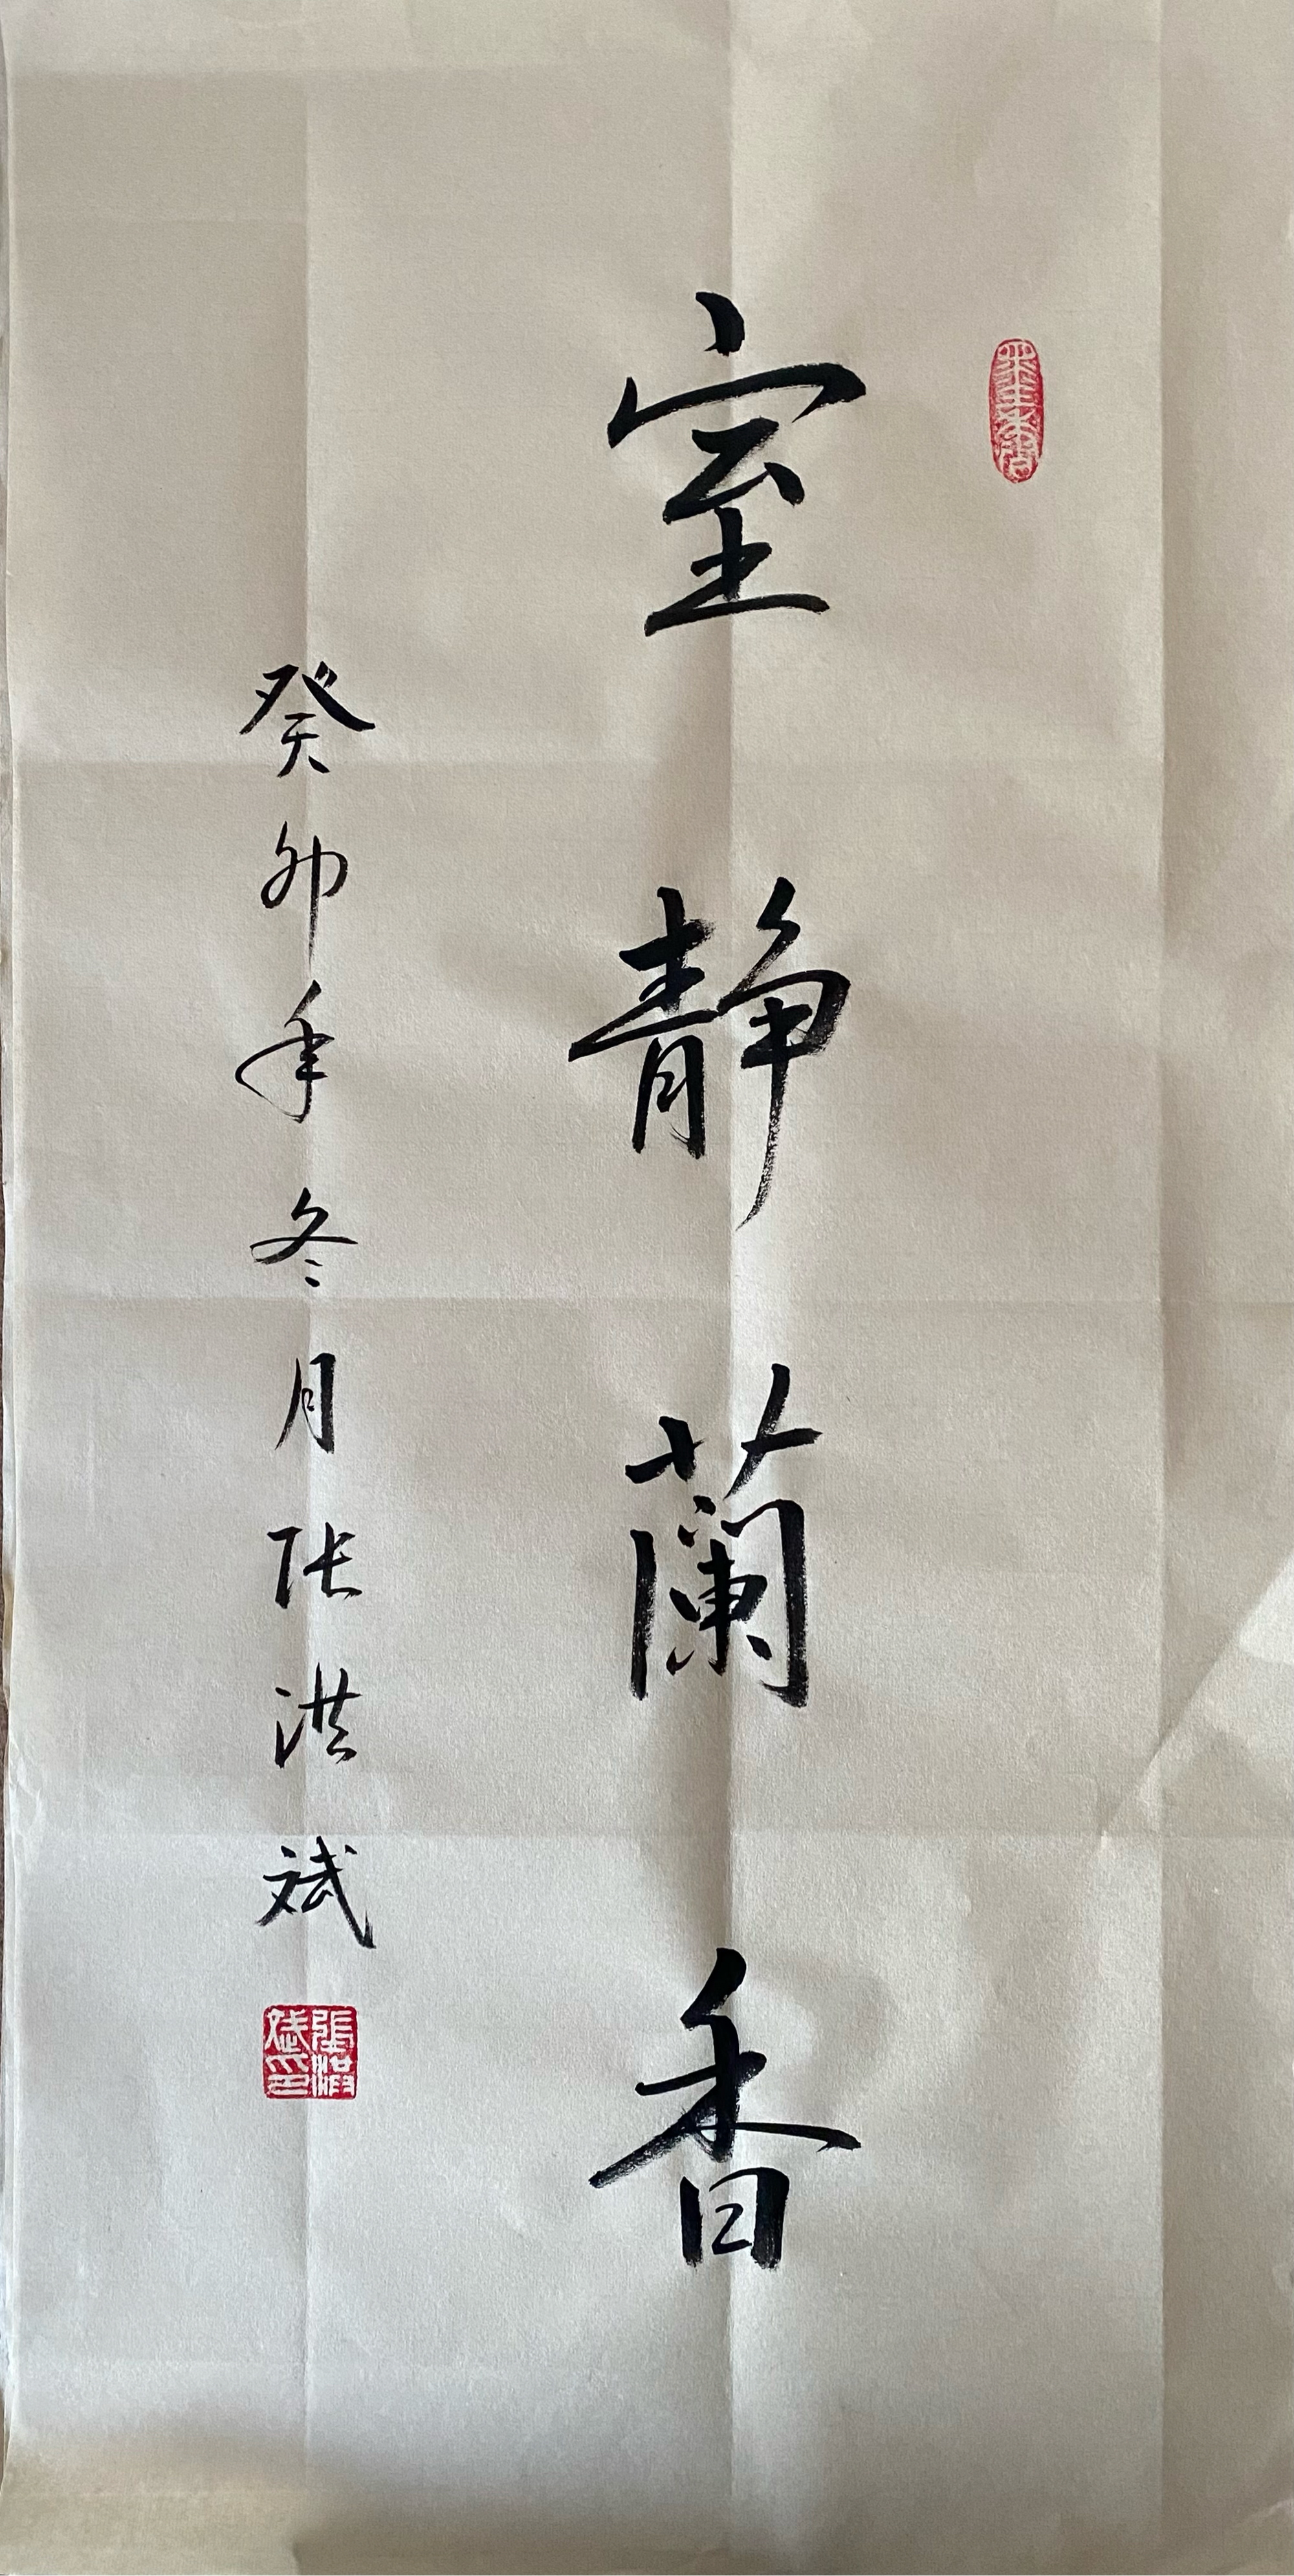 室静蘭香
癸卯年冬月张洪斌
張洪斌印